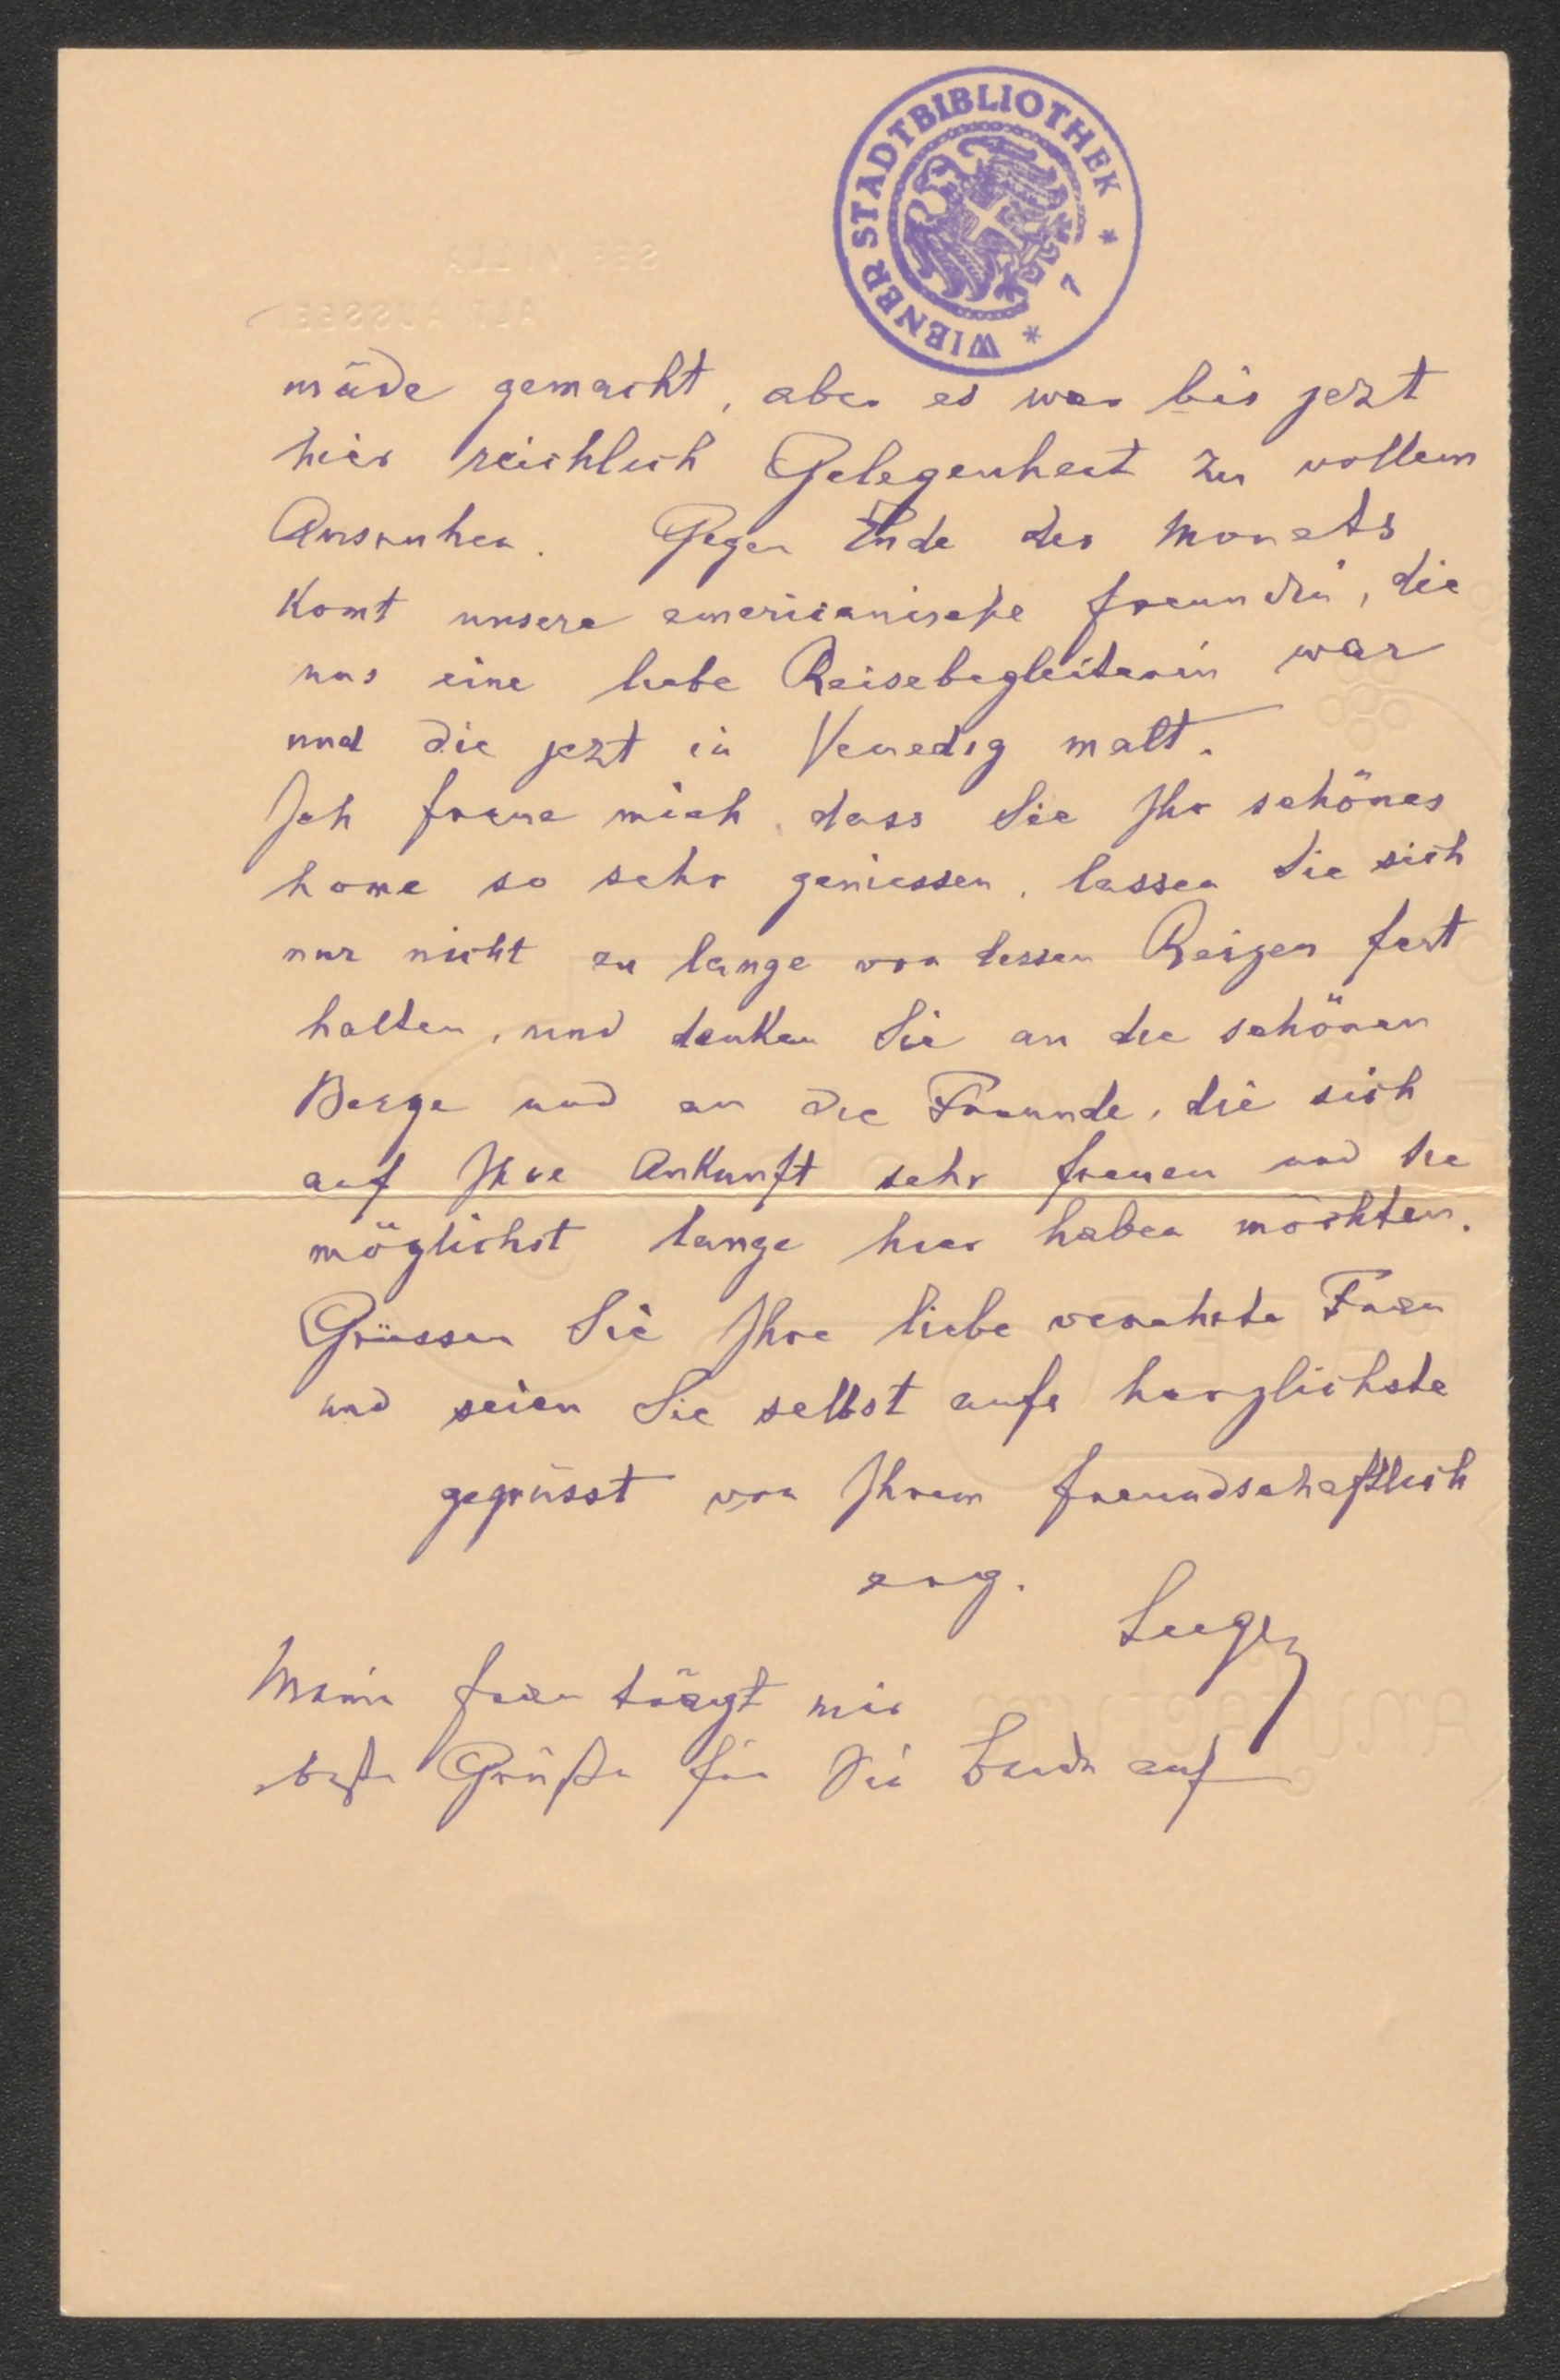 WIENER STADTBIBLIOTHEK * 7 *
SEE VILLA
ALT AUSSEE
müde gemacht, aber es war bis jezt
hier reichlich Gelegenheit zu vollem
Ausruhen. Gegen Ende des Monats
komt unsere americanische freundin, die
uns eine liebe Reisebegleiterin war
und die jezt in Venedig malt.
Ich freue mich, dass Sie Ihr schönes
home so sehr geniessen, lassen Sie sich
nur nicht zu lange von dessen Reizen fest
halten, und denken Sie an die schönen
Berge und an die Freunde, die sich
auf Ihre Ankunft sehr freuen und Sie
möglichst lange hier haben möchten.
Grüssen Sie Ihre liebe verehrte Frau
und seien Sie selbst aufs herzlichste
gegrüsst von Ihrem freundschaftlich
erg.
Meine frau trägt mir
beste Grüße für Sie beide auf